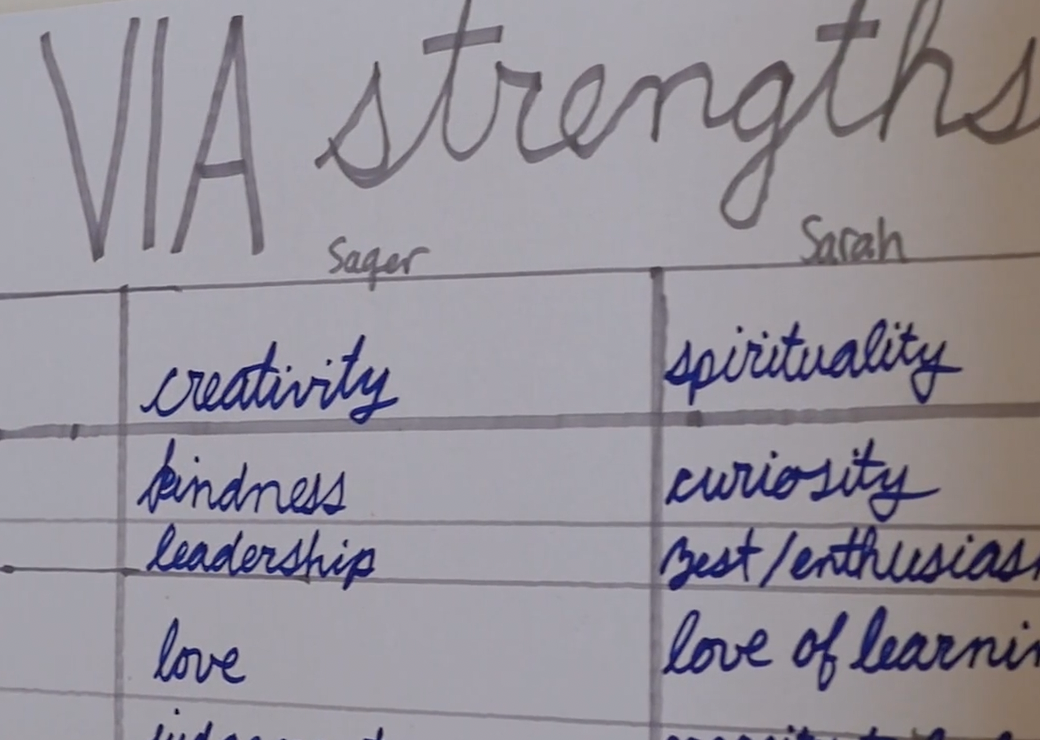 VIA strengths
Sager Sarah
creativity spirituality
kindness curiosity
leadership zest/enthusias
love love of learnin